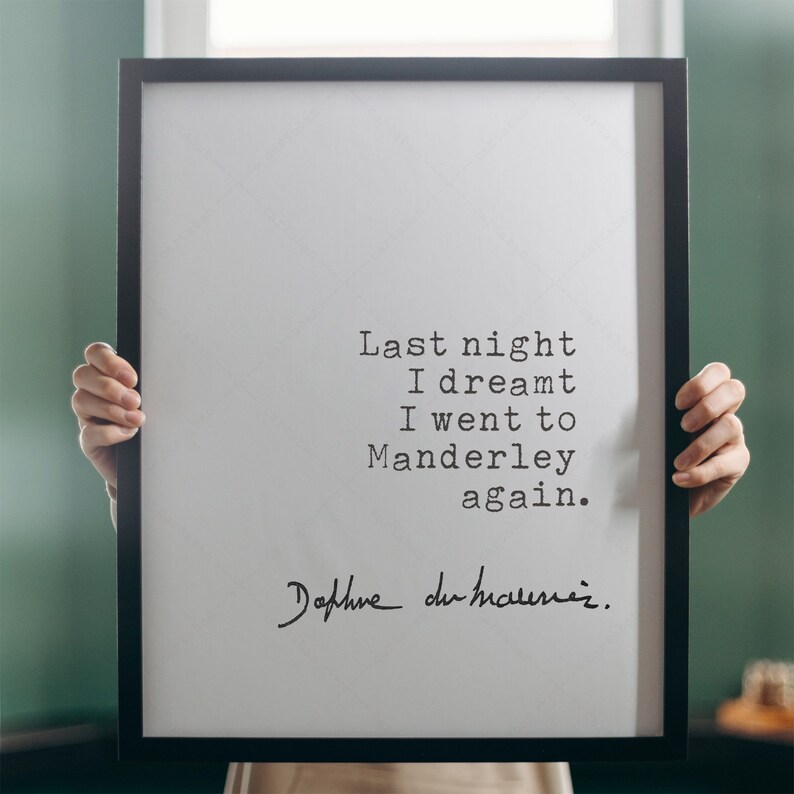 Last night
I dreamt
I went to
Manderley
again.
Daphne du Maurier.